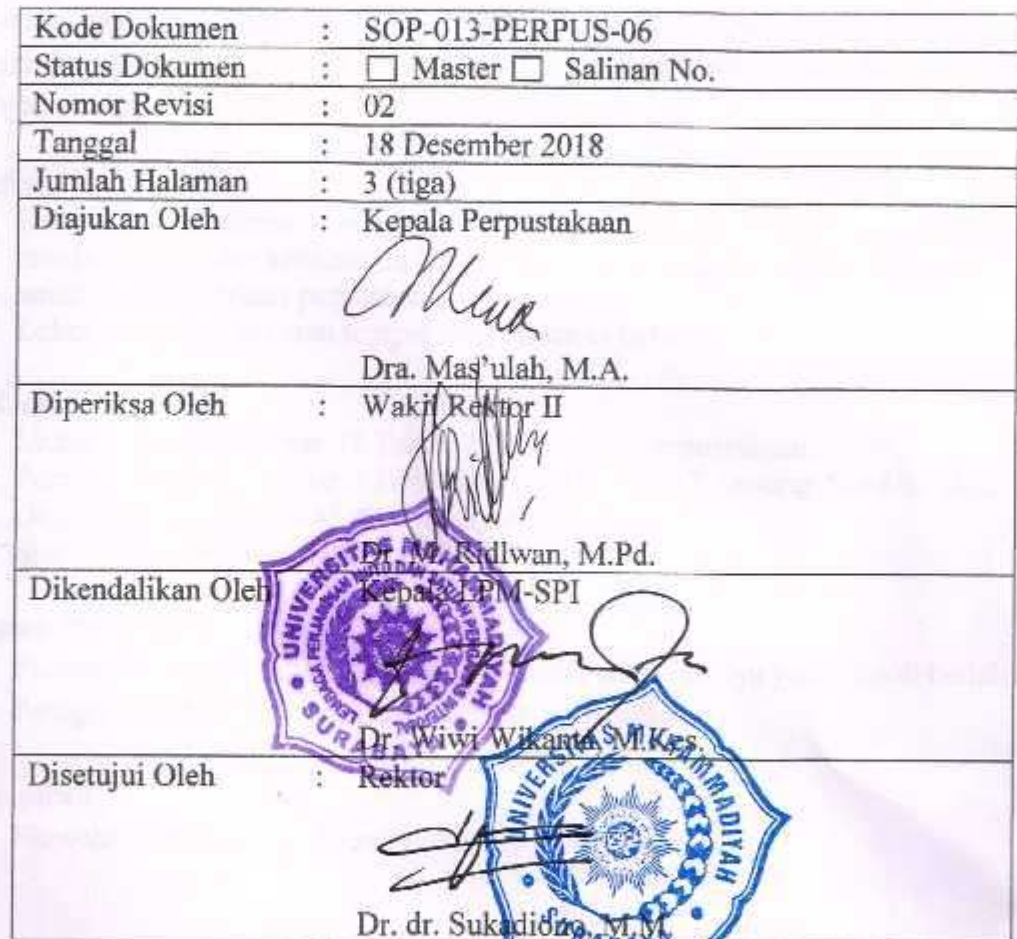 Kode Dokumen : SOP-013-PERPUS-06
Status Dokumen : ☐ Master ☐ Salinan No.
Nomor Revisi : 02
Tanggal : 18 Desember 2018
Jumlah Halaman : 3 (tiga)
Diajukan Oleh : Kepala Perpustakaan
Dra. Mas'ulah, M.A.
Diperiksa Oleh : Wakil Rektor II
Dr. M. Ridlwan, M.Pd.
Dikendalikan Oleh Kepala LPM-SPI
UNIVERSITAS MUHAMMADIYAH
SURABAYA
Dr. Wiwi Wikanta, M.Kes.
Disetujui Oleh : Rektor
UNIVERSITAS MUHAMMADIYAH
SURABAYA
Dr. dr. Sukadiono, M.M